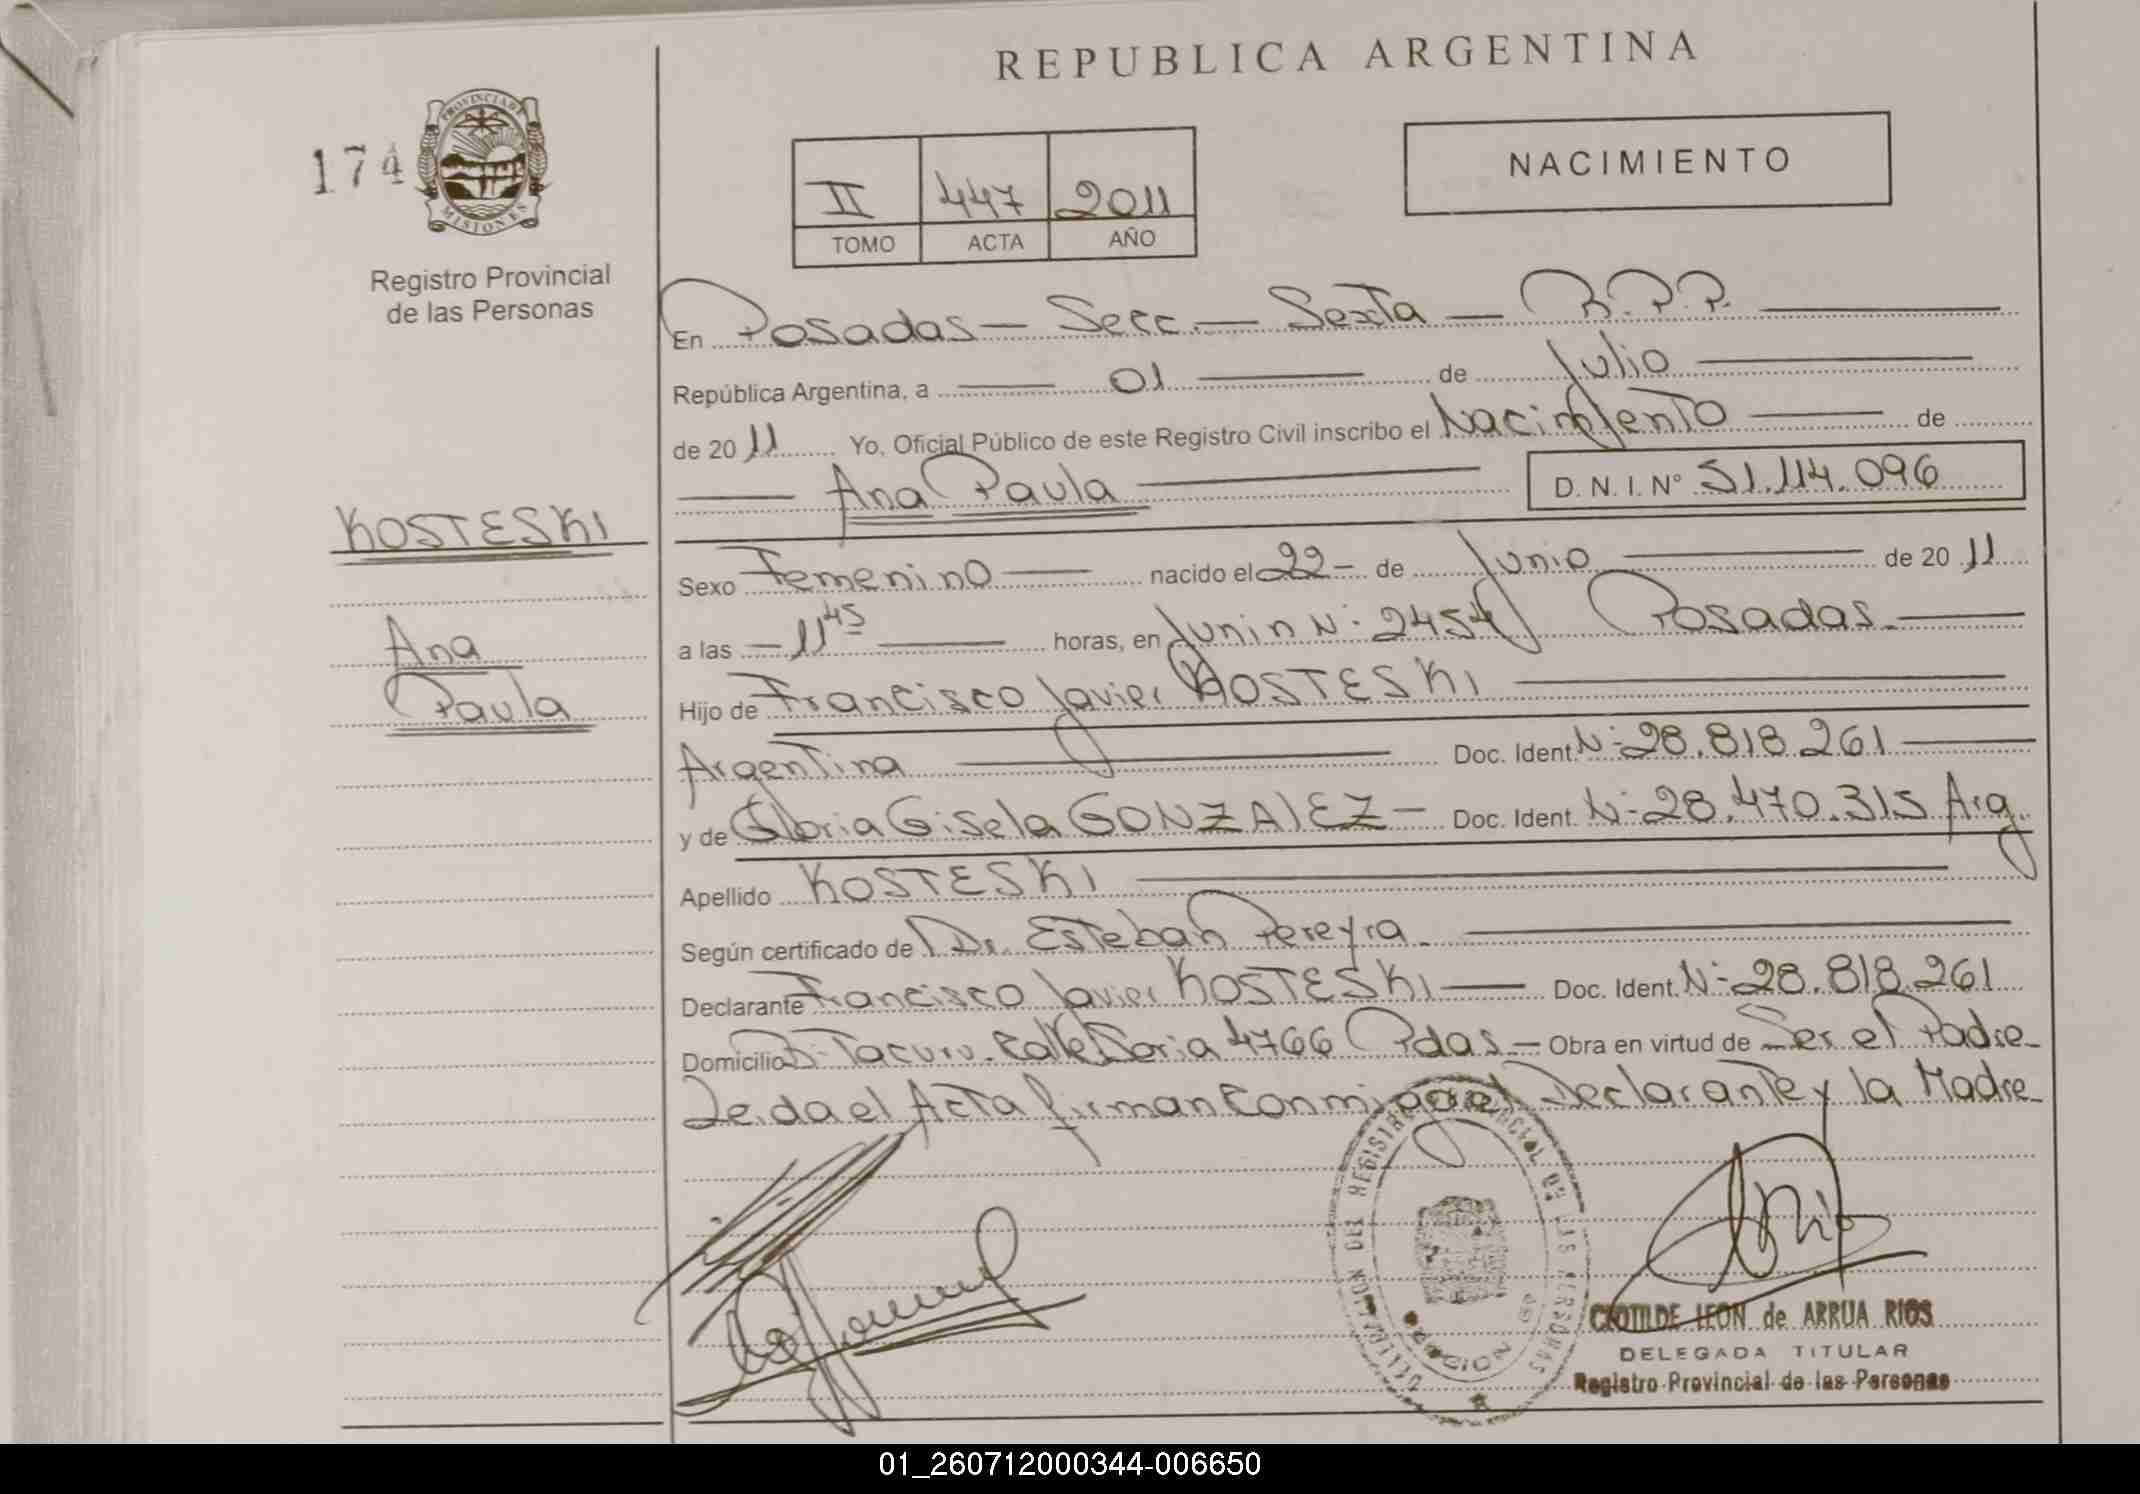 REPUBLICA ARGENTINA
174
PROVINCIA DE
MISIONES
Registro Provincial
de las Personas
II 447 2011
TOMO ACTA AÑO
NACIMIENTO
En Posadas - Secc. - Sexta - R.P.P.
República Argentina, a 01 de Julio
de 2011 Yo, Oficial Público de este Registro Civil inscribo el Nacimiento de
Ana Paula D. N. I. N° 51.114.096
KOSTESKI
Ana
Paula
Sexo Femenino nacido el 22 - de Junio de 2011
a las - 11 45 horas, en Junin N: 2454 Posadas.
Hijo de Francisco Javier KOSTESKI
Argentina Doc. Ident. N: 28.818.261
y de Gloria Gisela GONZALEZ - Doc. Ident. N: 28.470.315 Arg.
Apellido KOSTESKI
Según certificado de Dr. Esteban Pereyra.
Declarante Francisco Javier KOSTESKI Doc. Ident. N: 28.818.261
Domicilio B: Tacuru. Calle Soria 4766 Pdas - Obra en virtud de Ser el Padre
Leida el Acta firman conmigo el Declarante y la Madre
CLOTILDE LEON de ARRUA RIOS
DELEGADA TITULAR
Registro Provincial de las Personas
01_260712000344-006650